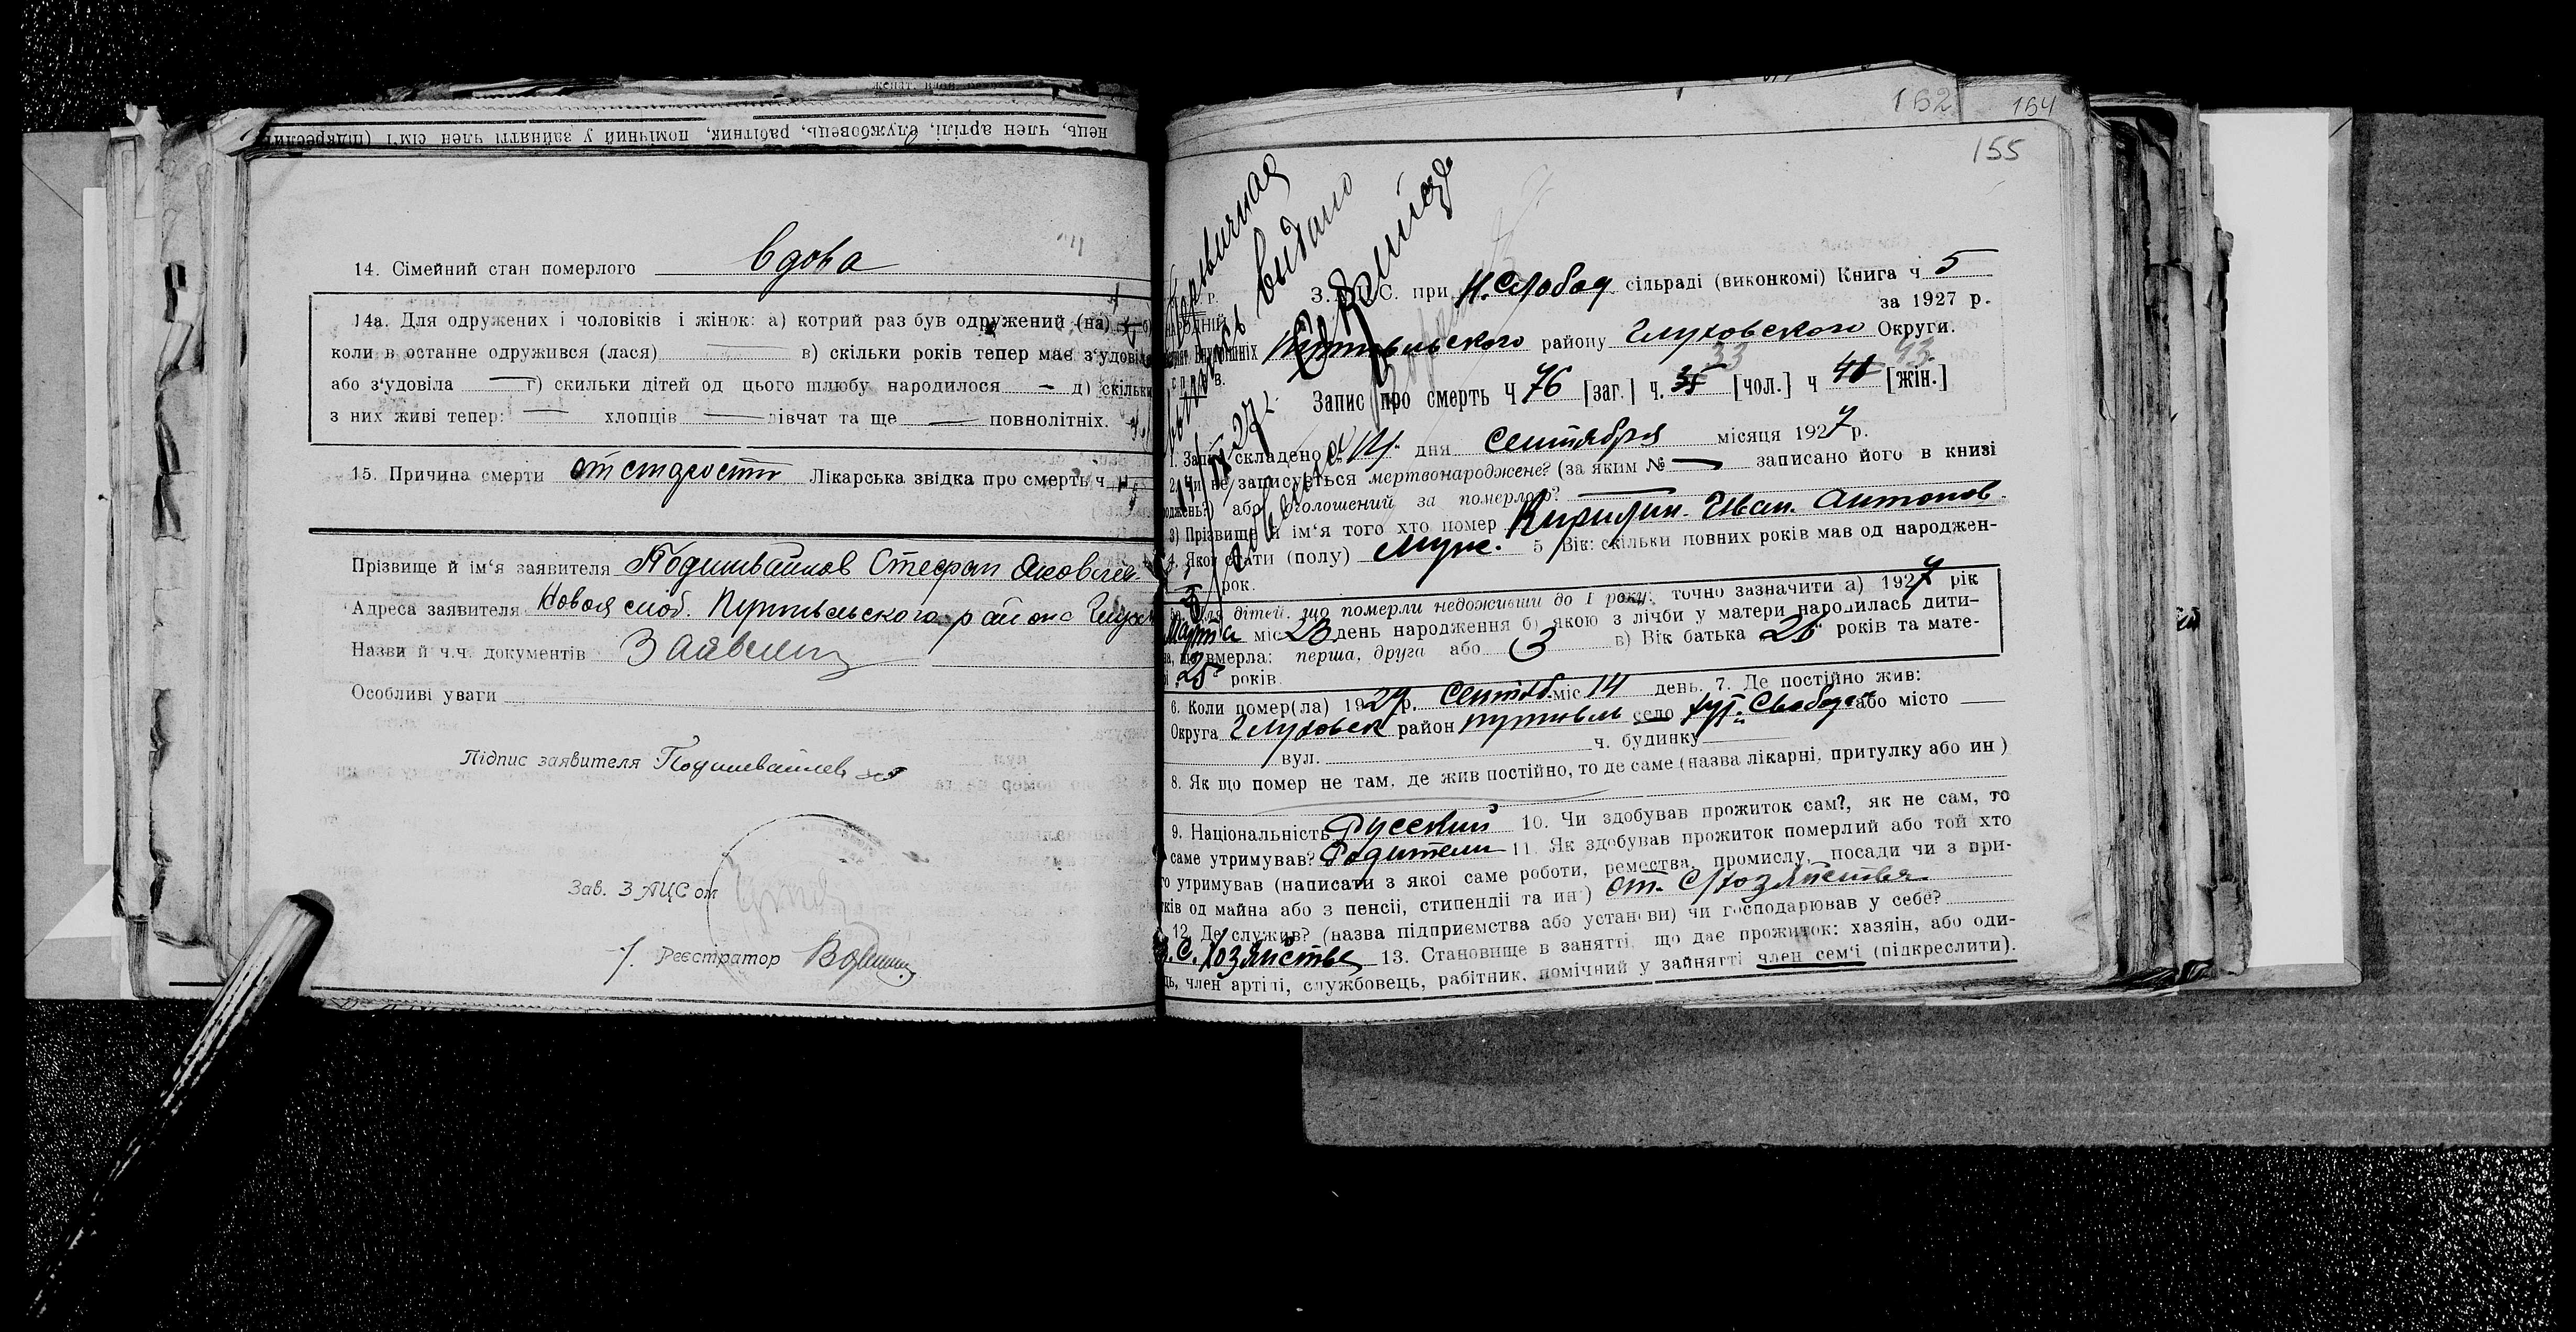 нець, член артілі, службовець, рабітник, помічний у зайнятті член сім'ї (підкреслити
14. Сімейний стан померлого вдова
14а. Для одружених і чоловіків і жінок: а) котрий раз був одружений (на)
коли в останнє одружився (лася) в) скільки років тепер має з'удовіла
або з'удовіла — г) скильки дітей од цього шлюбу народилося — д) скільки
з них живі тепер: — хлопців — дівчат та ще — повнолітніх.
15. Причина смерти от старости Лікарська звідка про смерть ч.
Прізвище й ім'я заявителя Подшивайлов Стефан Яковлев
Адреса заявителя Новая слоб. Путивльского района Глухов
Назви й ч.ч. документів
Особливі уваги
Підпис заявителя Подшивайлов
Зав. ЗАЦСом
Реєстратор
162 164
155
выдано
З. А. С. при Н. Слобод сільраді (виконкомі) Книга ч 5
за 1927 р.
Путивльского району Глуховского Округи.
33 43
Запис про смерть Ч 76 [заг.] ч. 35 [чол.] ч [жін.]
1. Запис складено 14 дня Сентября місяця 1927 р.
2. Чи не записується мертвонароджене? (за яким № — записано його в книзі
роджень?) або оголошений за померлого?
3) Прізвище й ім'я того хто помер Кирилин Иван Антонов
4. Якої стати (полу) Муж. 5 Вік: скільки повних років мав од народжен-
рок.
Для дітей, що померли недоживши до 1 року: точно зазначити а) 1927 рік
Марта міс 23 день народження б) якою з лічби у матери народилась дити-
на, що вмерла: перша, друга або 3 в) Вік батька 26 років та мате-
рі 25 років.
6. Коли помер(ла) 1927 р. Сентяб. міс 14 день. 7. Де постійно жив:
Округа Глуховск район Путивль село Слобода або місто —
вул. ч. будинку
8. Як що помер не там, де жив постійно, то де саме (назва лікарні, притулку або ин)
9. Національність Русский 10. Чи здобував прожиток сам?, як не сам, то
саме утримував? Родители 11. Як здобував прожиток померлий або той хто
го утримував (написати з якої саме роботи, ремества, промислу, посади чи з при-
тків од майна або з пенсії, стипендії та ин) от. С/хозяйства
12. Де служив? (назва підприємства або установи) чи господарював у себе?
С. Хозяйстве 13. Становище в занятті, що дає прожиток: хазяін, або оди-
ць, член артілі, службовець, рабітник, помічний у зайнятті член сем'ї (підкреслити).